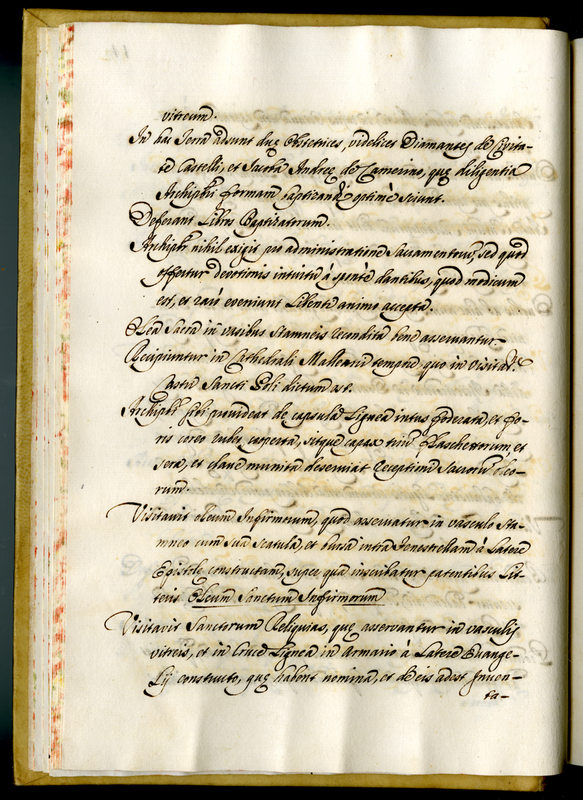 vitreum.
In hac Terra adsunt duę Obstetrices, videlicet Diamantes de Civita-
te Castelli, et Sancta Andreę de Camerino, quę diligentia
Archipbri formam baptizandi optimè sciunt.
Deferant Libros Baptizatorum.
Archipbr nihil exigit pro administratione Sacramentorum, sed quod
offertur devotionis intuitu à spontè dantibus, quod modicum
est, et rarò eveniunt Libenti animo acceptat.
Olea Sacra in vasibus stamneis recondita bene asservantur.
Recipiuntur in Cathedrali tempore, quo in Visitat.
Sancti dictum est.
Archipbr sibi provideat de capsula Lignea intus foderata, et fo-
ris coreo rubeo cooperta, sitque capax trium flaschettorum, et
sera, et clave munita deserviat receptioni Sacrorum Oleo-
rum.
Visitavit oleum Infirmorum, quod asservatur in vasculo sta-
mneo cum sua scatula, et bursa intra fenestrellam à Latere
Epistolę constructam, super qua inscribatur patentibus Lit-
teris Oleum Sanctum Infirmorum
Visitavit Sanctorum Reliquias, quę asservantur in vasculis
vitreis, et in Cruce Lignea in Armario à Latere Evange-
lij constructo, quę habent nomina, et de eis adest Inven-
ta-